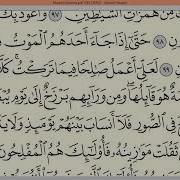 مِنْ هَمَزَٰتِ ٱلشَّيَٰطِينِ ٩٧ وَأَعُوذُ بِكَ
٩٨ حَتَّىٰٓ إِذَا جَآءَ أَحَدَهُمُ ٱلْمَوْتُ
٩٩ لَعَلِّىٓ أَعْمَلُ صَٰلِحًا فِيمَا تَرَكْتُ ۚ كَلَّآ
هُوَ قَآئِلُهَا ۖ وَمِن وَرَآئِهِم بَرْزَخٌ إِلَىٰ يَوْمِ
فِى ٱلصُّورِ فَلَآ أَنسَابَ بَيْنَهُمْ يَوْمَئِذٍ وَلَا
ثَقُلَتْ مَوَٰزِينُهُۥ فَأُو۟لَٰٓئِكَ هُمُ ٱلْمُفْلِحُونَ